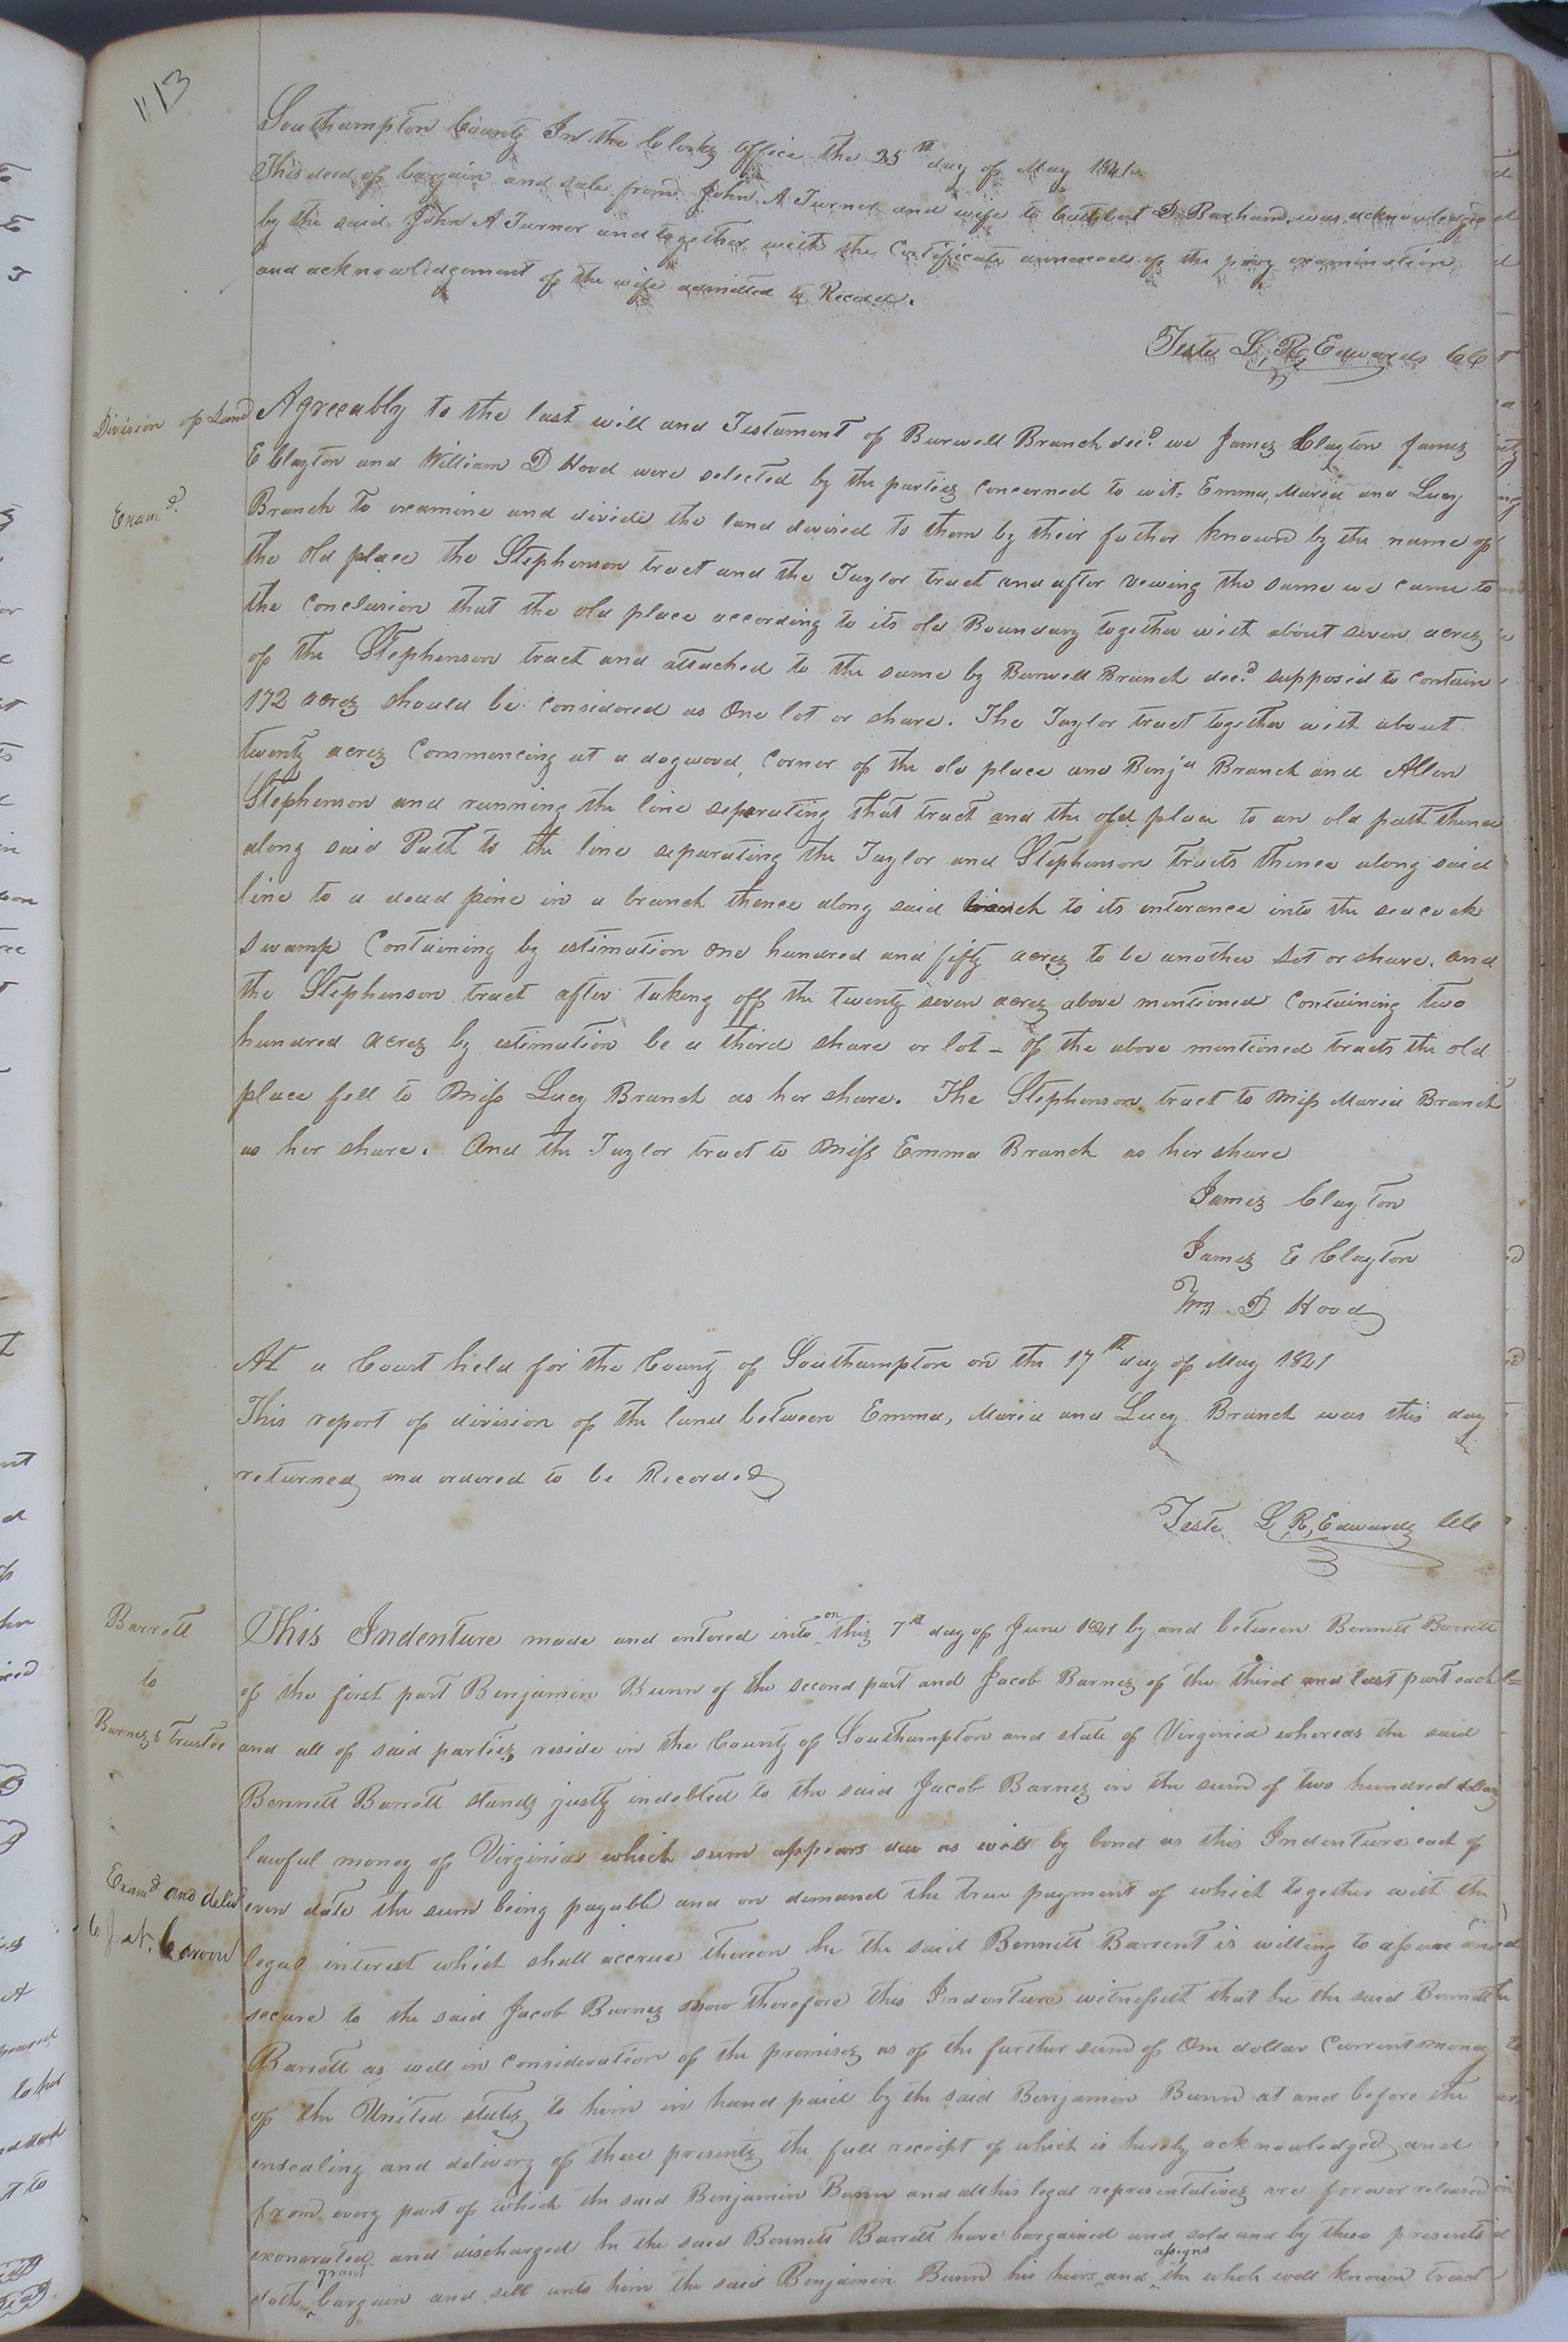 113
Southampton County In the Clerks office the 25th day of May 1841
This deed of bargain and sale from John A Turner and wife to Cuthbert D. Barham was acknowledged
by the said John A Turner and together with the Certificate annexed of the privy examination
and acknowledgement of the wife admitted to Record.
Teste L, R, Edwards CC
Division of Land
Agreeably to the last will and Testament of Burwell Branch decd. we James Clayton James
E Clayton and William D Hood were selected by the parties concerned to wit= Emma, Maria and Lucy
Examd.
Branch to examine and divide the land devised to them by their father known by the name of
the old place the Stephenson tract and the Taylor tract and after vewing the same we came to
the conclusion that the old place according to its old Boundary together with about seven acres
of the Stephenson tract and attached to the same by Burwell Branch decd. supposed to contain
172 acres should be considered as One lot or share. The Taylor tract together with about
twenty acres Commencing at a dogwood, corner of the old place and Benja Branch and Allen
Stephenson and running the line seperating that tract and the old place to an old path thence
along said Path to the line separating the Taylor and Stephenson tracts thence along said
line to a dead pine in a branch thence along said branch to its enterance into the seacock
swamp Containing by estimation one hundred and fifty acres to be another Lot or share. and
the Stephenson tract after taking off the twenty seven acres above mentioned containing two
hundred acres by estimation be a third share or lot - of the above mentioned tracts the old
place fell to Miss Lucy Branch as her share. The Stephenson tract to Miss Maria Branch
as her share. And the Taylor tract to Miss Emma Branch as her share
James Clayton
James E Clayton
Wm D Hood
At a Court held for the County of Southampton on the 17th day of May 1841
This report of division of the land between Emma, Maria and Lucy Branch was this day
returned and ordered to be Recorded
Teste L, R, Edwards CC
Barrett
to
Barnes's trustee
This Indenture made and entered into on this 7th day of June 1841 by and between Bennett Barrett
of the first part Benjamin Bunn of the second part and Jacob Barnes of the third and last part each
and all of said parties reside in the County of Southampton and state of Virginia whereas the said
Bennett Barrett stands justly indebted to the said Jacob Barnes in the sum of two hundred dollars
lawful money of Virginia which sum appears due as will by bond as this Indenture each of
Examd and deld
even date the sum being payable and on demand the true payment of which together with the
legal interest which shall accrue thereon he the said Bennett Barrent is willing to assure and
secure to the said Jacob Barnes now therefore this Indenture witnesseth that he the said Bennett
Barrett as well in consideration of the premises as of the further sum of One dollar current money
of the United states to him in hand paid by the said Benjamin Bunn at and before the
ensealing and delivery of these presents the full receipt of which is hereby acknowledged and
from every part of which the said Benjamin Bunn and all his legal representatives are forever released
exonerated and discharged he the said Bennett Barrett have bargained and sold and by these presents
doth grant bargain and sell unto him the said Benjamin Bunn his heirs and assigns the whole well known tract